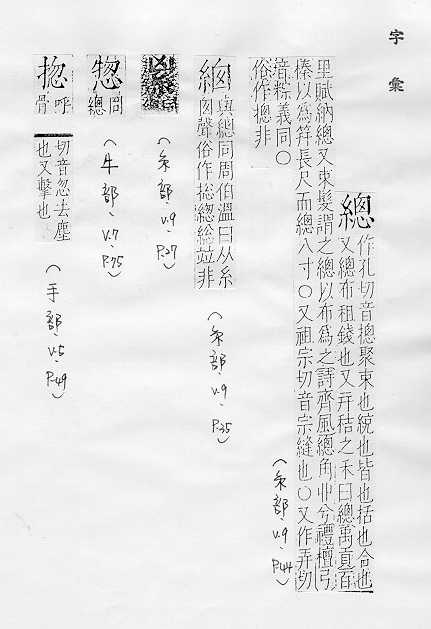 字彙
總 作孔切音摠聚束也統也皆也括也合也
又總布租錢也又幷秸之禾曰總禹貢百
里賦納總又束髮謂之總以布爲之詩齊風總角丱兮禮檀弓
榛以爲笄長尺而總八寸○又祖宗切音宗縫也○又作弄切
音粽義同○
俗作摠非
(糸部、V.9、P.44)
與總同周伯溫曰从糸
囪聲俗作総緫總竝非
(糸部、V.9、P.35)
(糸部、V.9、P.37)
同
總
(牛部、V.7、P.75)
揔 呼
骨
切音忽去塵
也又擊也
(手部、V.5、P.49)